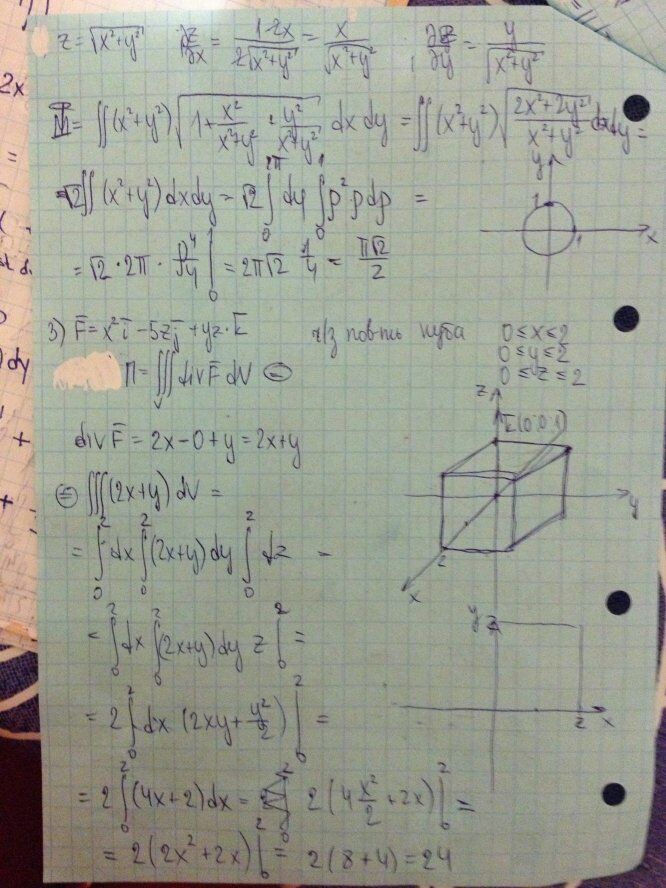 z = √(x²+y²)   ∂z/∂x = 1·2x / 2√(x²+y²) = x / √(x²+y²) ; ∂z/∂y = y / √(x²+y²)
M = ∬(x²+y²) √(1 + x²/(x²+y²) + y²/(x²+y²)) dx dy = ∬(x²+y²) √((2x²+2y²)/(x²+y²)) dxdy =
= √2 ∬(x²+y²) dx dy = √2 ∫₀^2π dφ ∫₀¹ ρ² ρ dρ =
y
1
1
x
= √2 · 2π · ρ⁴/4 |₀¹ = 2π√2 1/4 = π√2/2
3) F̄ = x² ī − 5z j̄ + yz · k̄   ч/з пов-ть куба   0 ≤ x ≤ 2
0 ≤ y ≤ 2
0 ≤ z ≤ 2
П = ∭_V div F̄ dV ⊜
z
(0,0,1)
div F̄ = 2x − 0 + y = 2x + y
⊜ ∭(2x+y) dV =
y
2
x
= ∫₀² dx ∫₀² (2x+y) dy ∫₀² dz =
= ∫₀² dx ∫₀² (2x+y) dy z |₀² =
y
2
2
x
= 2 ∫₀² dx (2xy + y²/2) |₀² =
= 2 ∫₀² (4x+2) dx = 2 (4 x²/2 + 2x) |₀² =
= 2 (2x² + 2x) |₀² = 2 (8+4) = 24